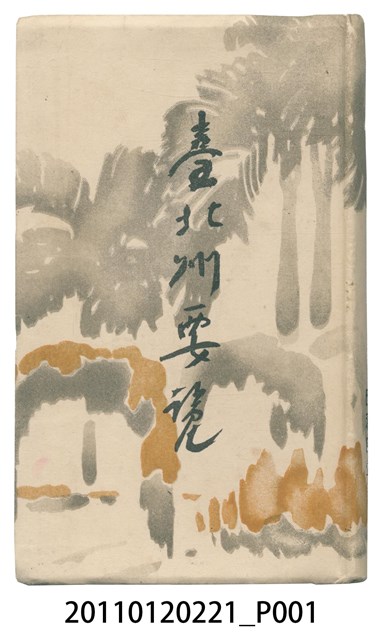 臺北州要覽
20110120221_P001